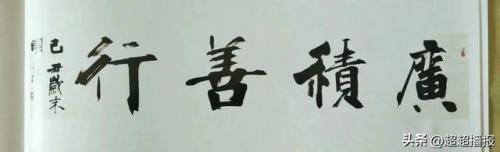 廣積善行
己丑歲末
头条 @超超播报